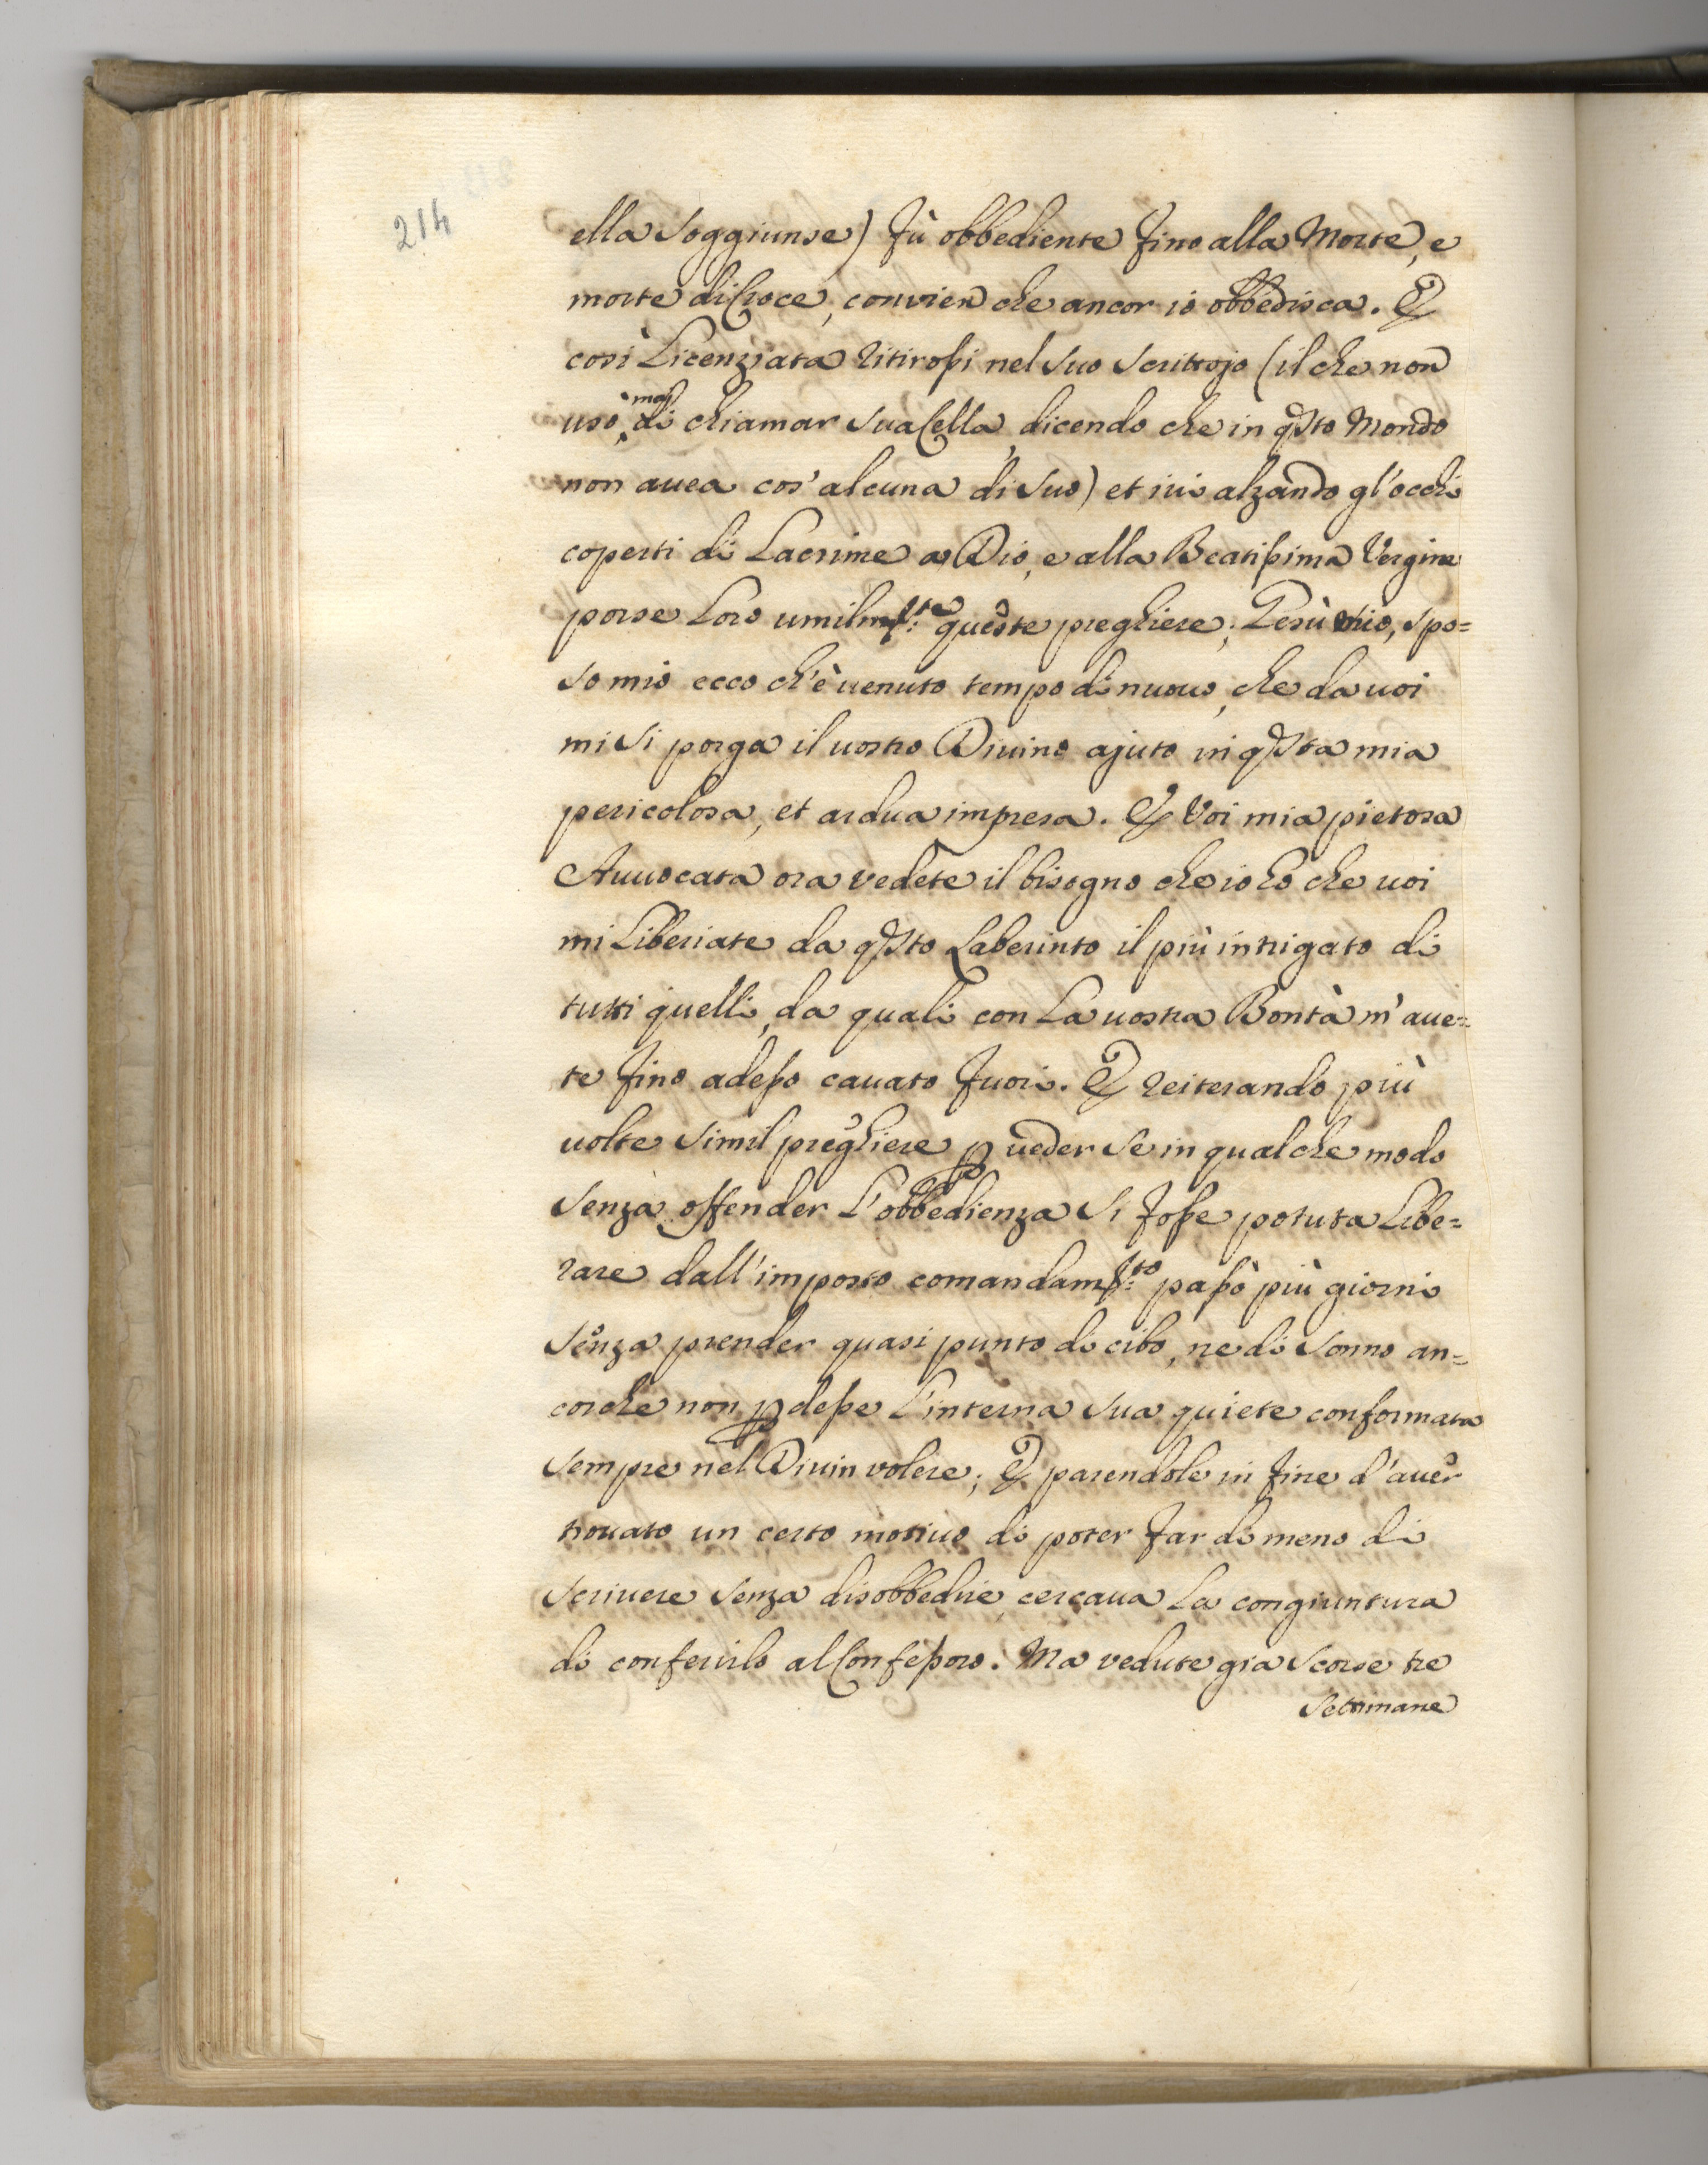 214
ella soggiunse) fù obbediente fino alla Morte, e
morte di Croce, convien che ancor io obbedisca. E
così Licenziata ritirossi nel suo scrittojo (il che non
usò mai di chiamar sua Cella, dicendo che in qsto Mondo
non avea cos' alcuna di suo) et ivi alzando gl'occhi
coperti di Lacrime a Dio, e alla Beatissima Vergine
porse Loro umilmte: queste preghiere; Gesù mio, spo=
so mio ecco ch'è venuto tempo di nuovo, che da voi
mi si porga il vostro Divino ajuto in qsta mia
pericolosa, et ardua impresa. E Voi mia pietosa
Avvocata ora vedete il bisogno che io hò che voi
mi Liberiate da qsto Laberinto il più intrigato di
tutti quelli, da quali con La vostra Bontà m'ave=
te fino adesso cavato fuori. E reiterando più
volte simil preghiere p veder se in qualche modo
senza offender L'obbedienza si fosse potuta Libe=
rare dall'imposto comandamto: passò più giorni
senza prender quasi punto di cibo, ne di sonno an=
corche non pdesse L'interna sua quiete conformata
sempre nel Divin volere; E parendole in fine d'aver
trovato un certo motivo di poter far di meno di
scrivere senza disobbedire, cercava La congiuntura
di conferirlo al Confessoro. Ma vedute gia scorse tre
settimane